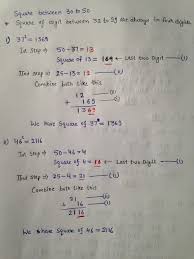 Square between 30 to 50
* Square of digit between 32 to 59 are always in four digits.
1) 37² = 1369
Ist step ⟹ 50-37 = 13
Square of 13 = 169 ← Last two Digit — (i)
IInd step ⟹ 25-13 = 12 — (ii)
Combine both like this
12 — (ii)
+ 169 — (i)
1369
We have Square of 37² = 1369
2) 46² = 2116
Ist Step ⟹ 50-46 = 4
Square of 4 = 16 ← Last two Digit — (i)
IInd step ⟹ 25-4 = 21 — (ii)
Combine both like this
21 — (ii)
+ 16 — (i)
2116
We have Square of 46 = 2116